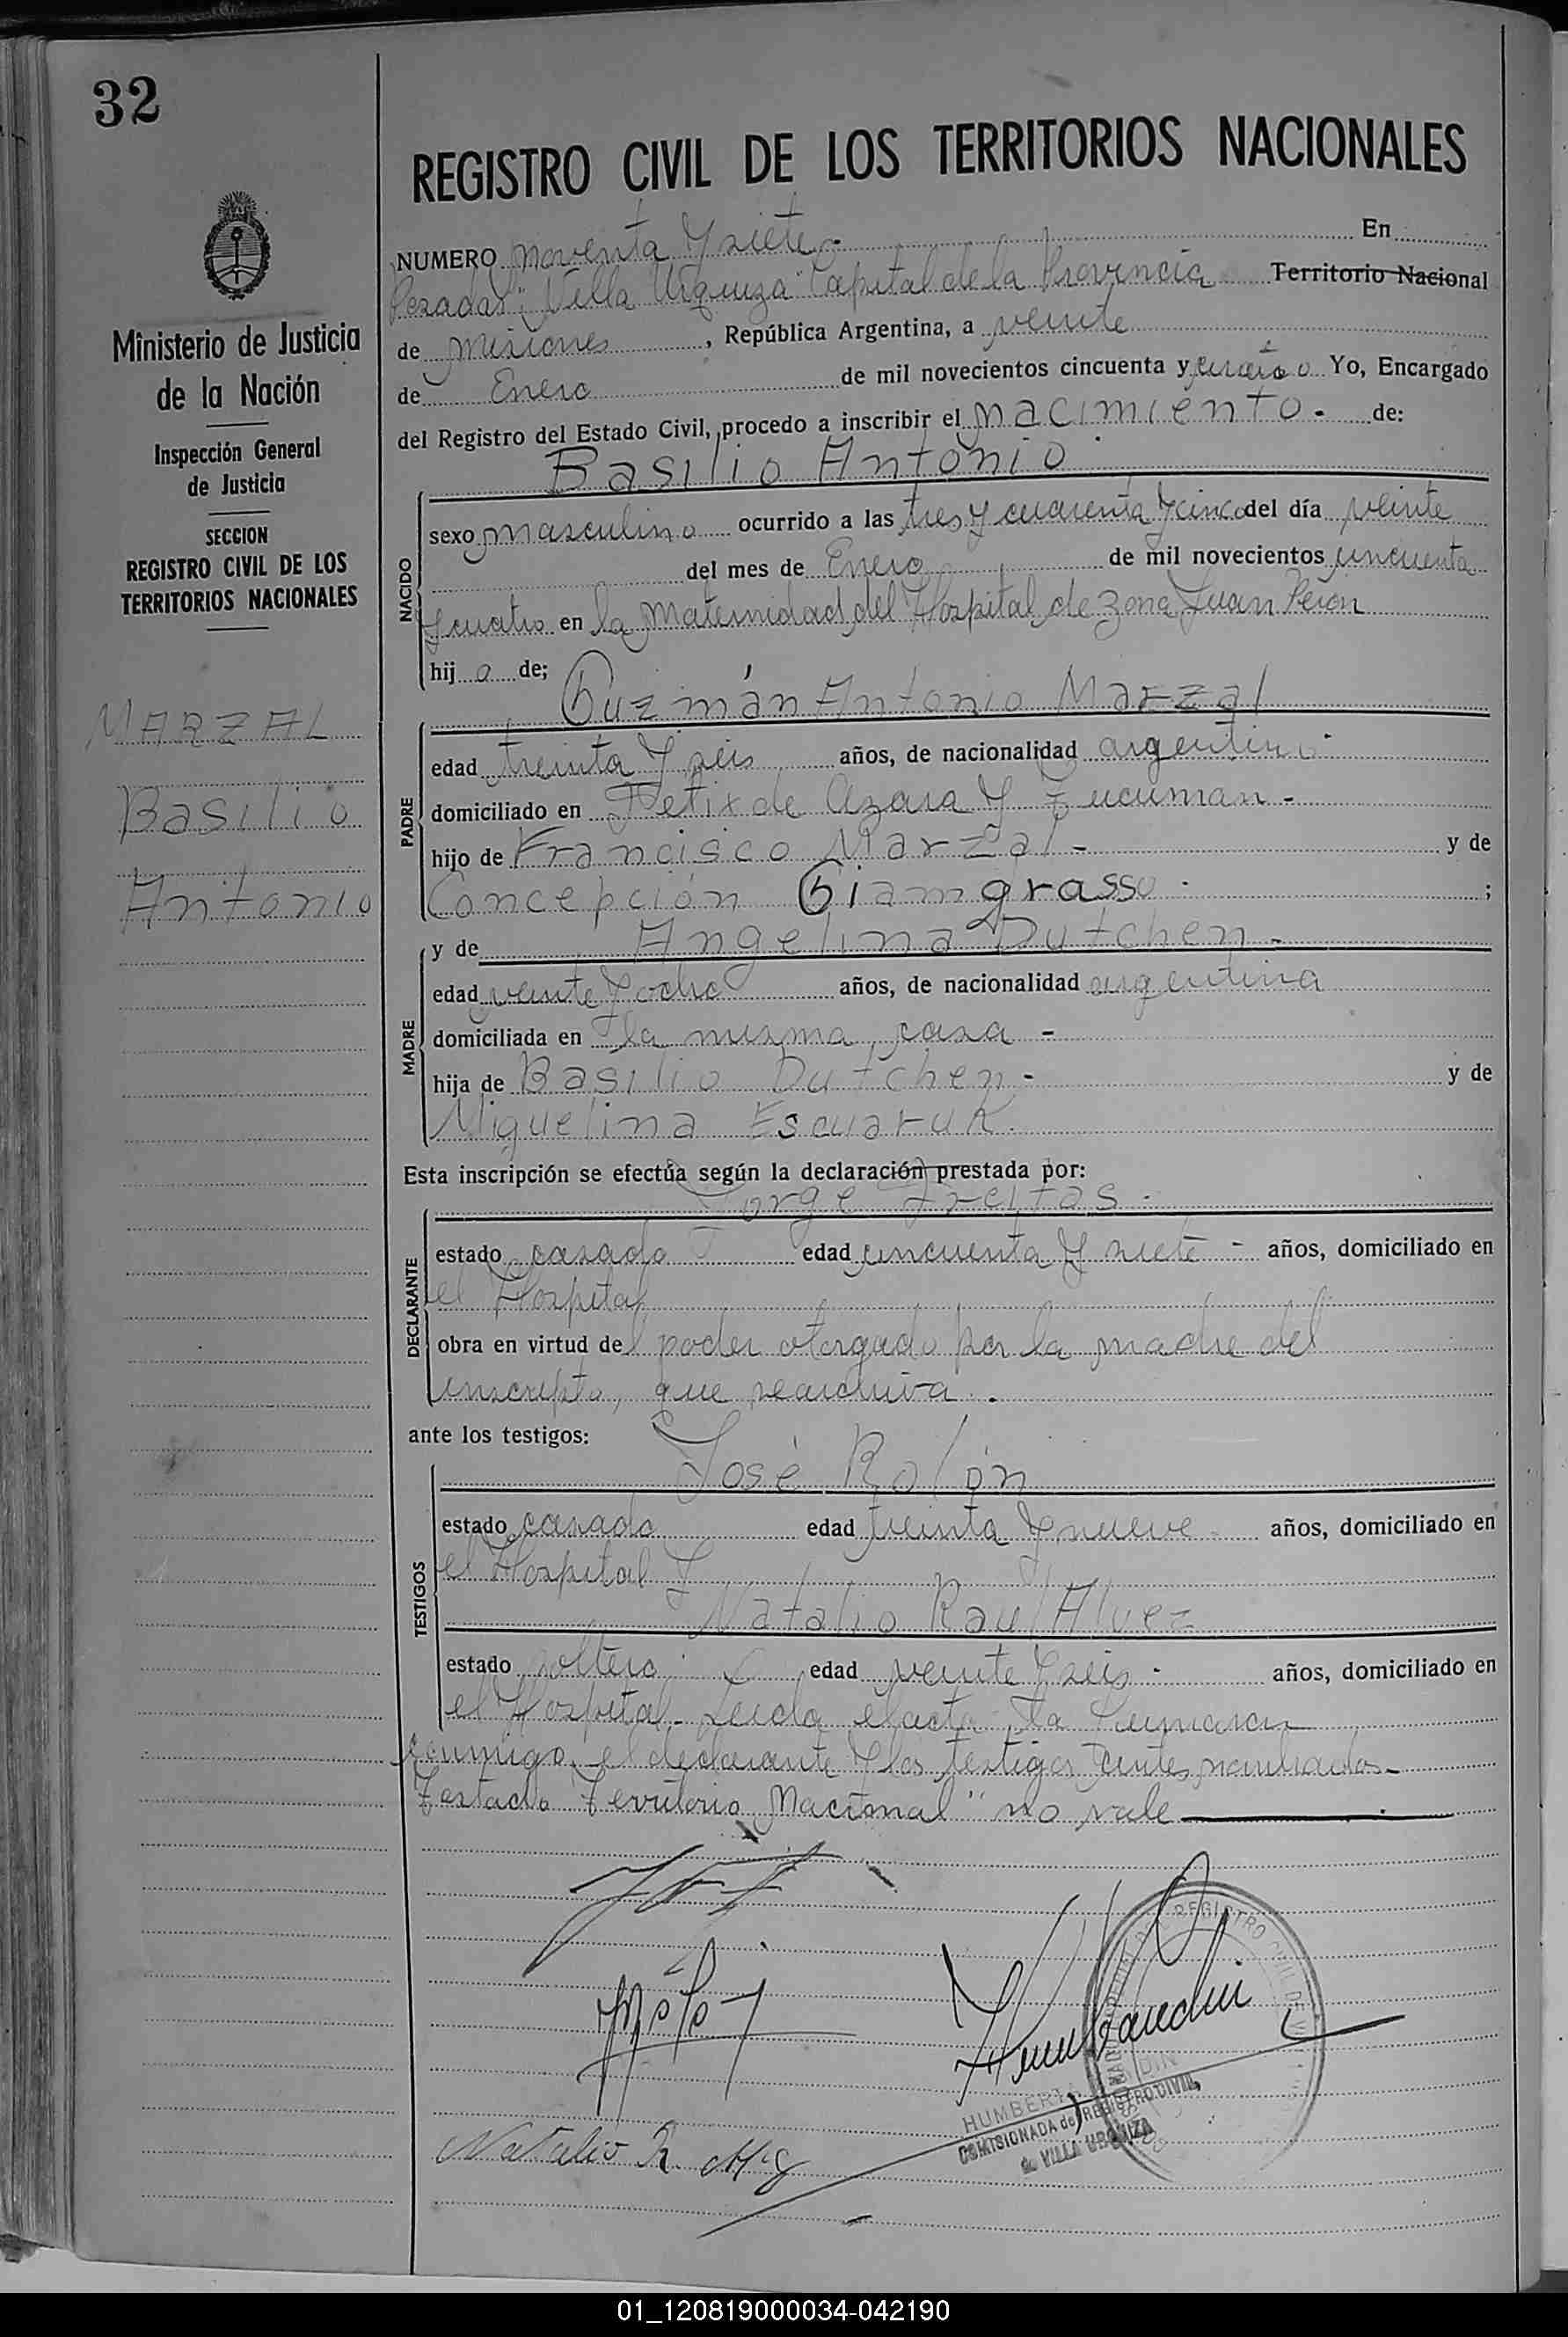 32
Ministerio de Justicia
de la Nación
Inspección General
de Justicia
SECCION
REGISTRO CIVIL DE LOS
TERRITORIOS NACIONALES
MARZAL
Basilio
Antonio
REGISTRO CIVIL DE LOS TERRITORIOS NACIONALES
NUMERO noventa y siete.- En
Posadas "Villa Urquiza" Capital de la Provincia Territorio Nacional
de Misiones, República Argentina, a veinte
de Enero de mil novecientos cincuenta y cuatro Yo, Encargado
del Registro del Estado Civil, procedo a inscribir el nacimiento.- de:
Basilio Antonio
NACIDO
sexo masculino ocurrido a las tres y cuarenta y cinco del día veinte
del mes de Enero de mil novecientos cincuenta
y cuatro en la Maternidad del Hospital de Zona Juan Perón
hijo de;
Guzmán Antonio Marzal
PADRE
edad treinta y seis años, de nacionalidad argentino
domiciliado en Felix de Azara y Tucuman -
hijo de Francisco Marzal - y de
Concepción Giamgrasso. ;
MADRE
y de Angelina Dutchen -
edad veinte y ocho años, de nacionalidad argentina
domiciliada en la misma casa -
hija de Basilio Dutchen - y de
Miguelina Escuaruk.
Esta inscripción se efectúa según la declaración prestada por:
DECLARANTE
Jorge Freitas.
estado casado edad cincuenta y siete - años, domiciliado en
el Hospital
obra en virtud del poder otorgado por la madre del
inscripto, que se archiva.
ante los testigos:
TESTIGOS
José Rolón
estado casado edad treinta y nueve años, domiciliado en
el Hospital y
Natalio Raul Alvez
estado soltero edad veinte y seis - años, domiciliado en
el Hospital. Leida el acta la firmaron
conmigo, el declarante y los testigos antes nombrados.-
Testado "Territorio Nacional" no vale
Natalio R.
REGISTRO CIVIL DE
HUMBERTO
COMISIONADA de REGISTRO CIVIL
de VILLA URQUIZA
01_120819000034-042190